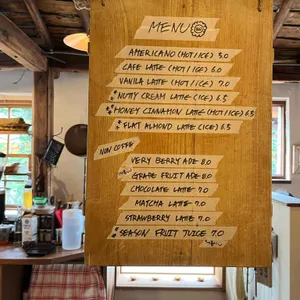 MENU
AMERICANO (HOT/ICE) 5.0
CAFE LATTE (HOT/ICE) 6.0
VANILA LATTE (HOT/ICE) 7.0
NUTTY CREAM LATTE (ICE) 6.5
HONEY CINNAMON LATTE (HOT/ICE) 6.5
FLAT ALMOND LATTE (ICE) 6.5
NON COFFEE
VERY BERRY ADE 8.0
GRAPE FRUIT ADE 8.0
CHOCOLATE LATTE 7.0
MATCHA LATTE 7.0
STRAWBERRY LATTE 7.0
SEASON FRUIT JUICE 7.0